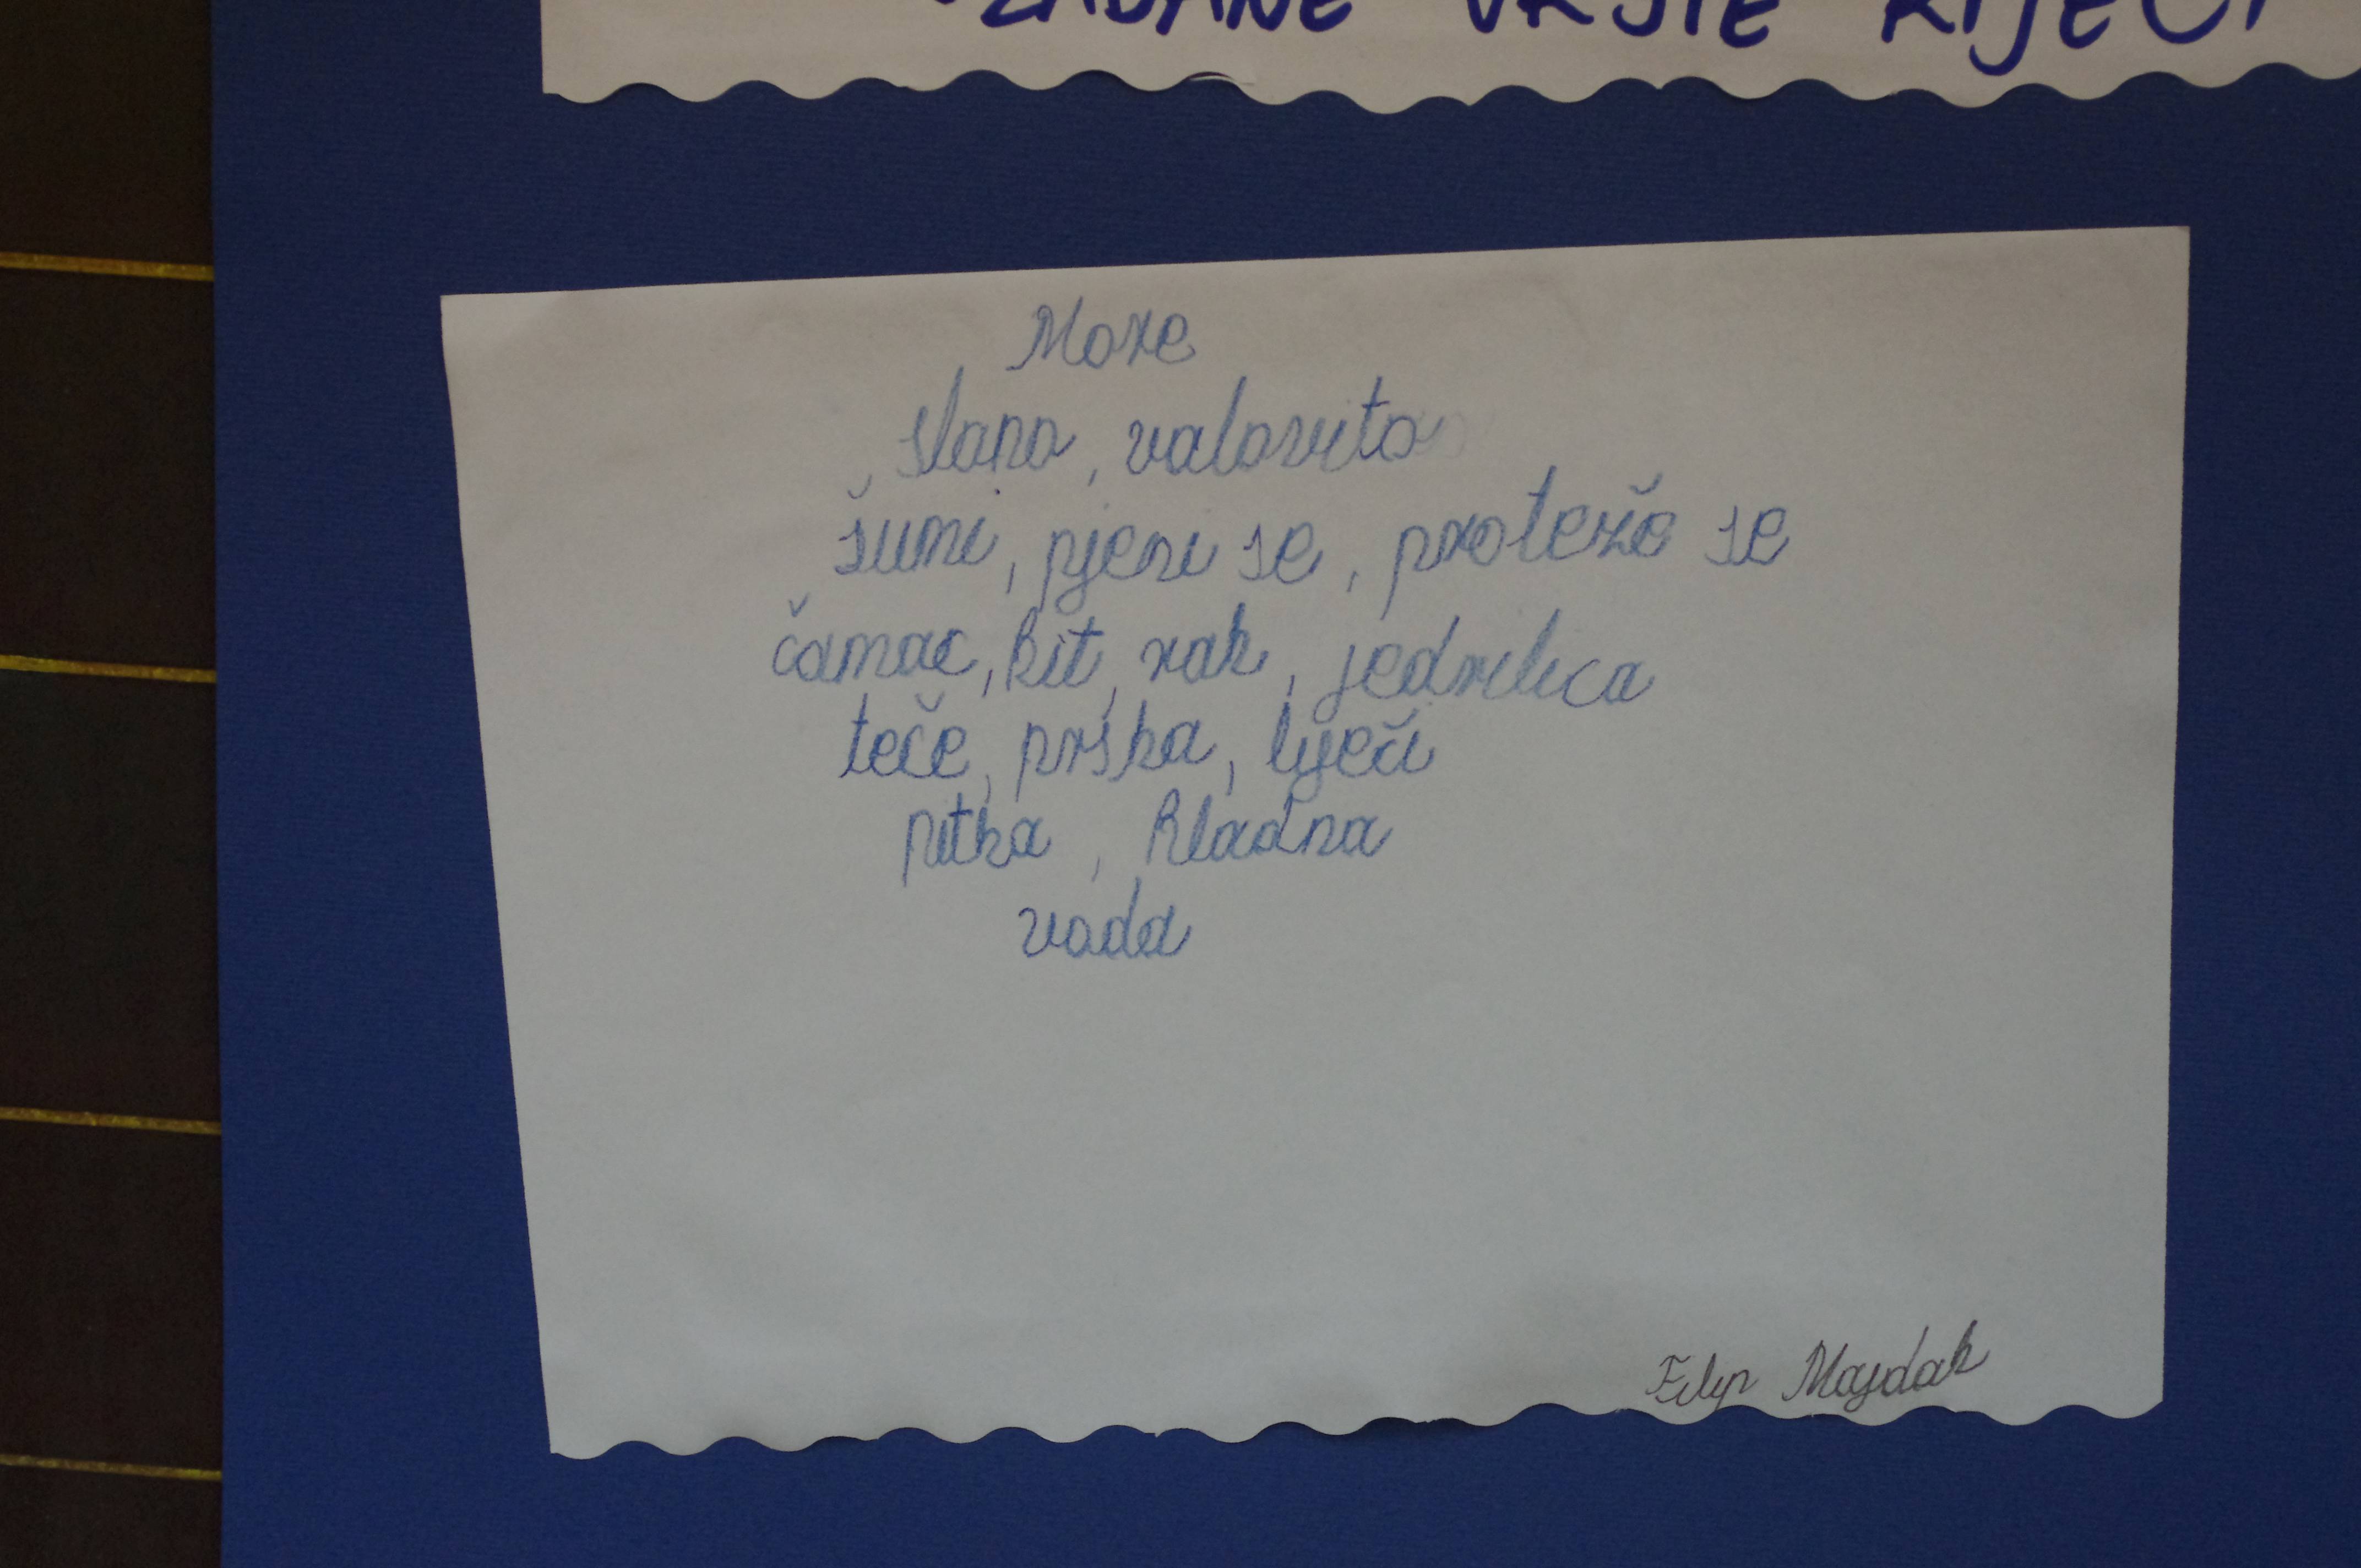 ZADANE VRSTE RIJEČI
More
slano, valovito
šumi, pjeni se, proteže se
čamac, kit, rak, jedrilica
teče, prska, liječi
pitka, hladna
voda
Filip Majdak